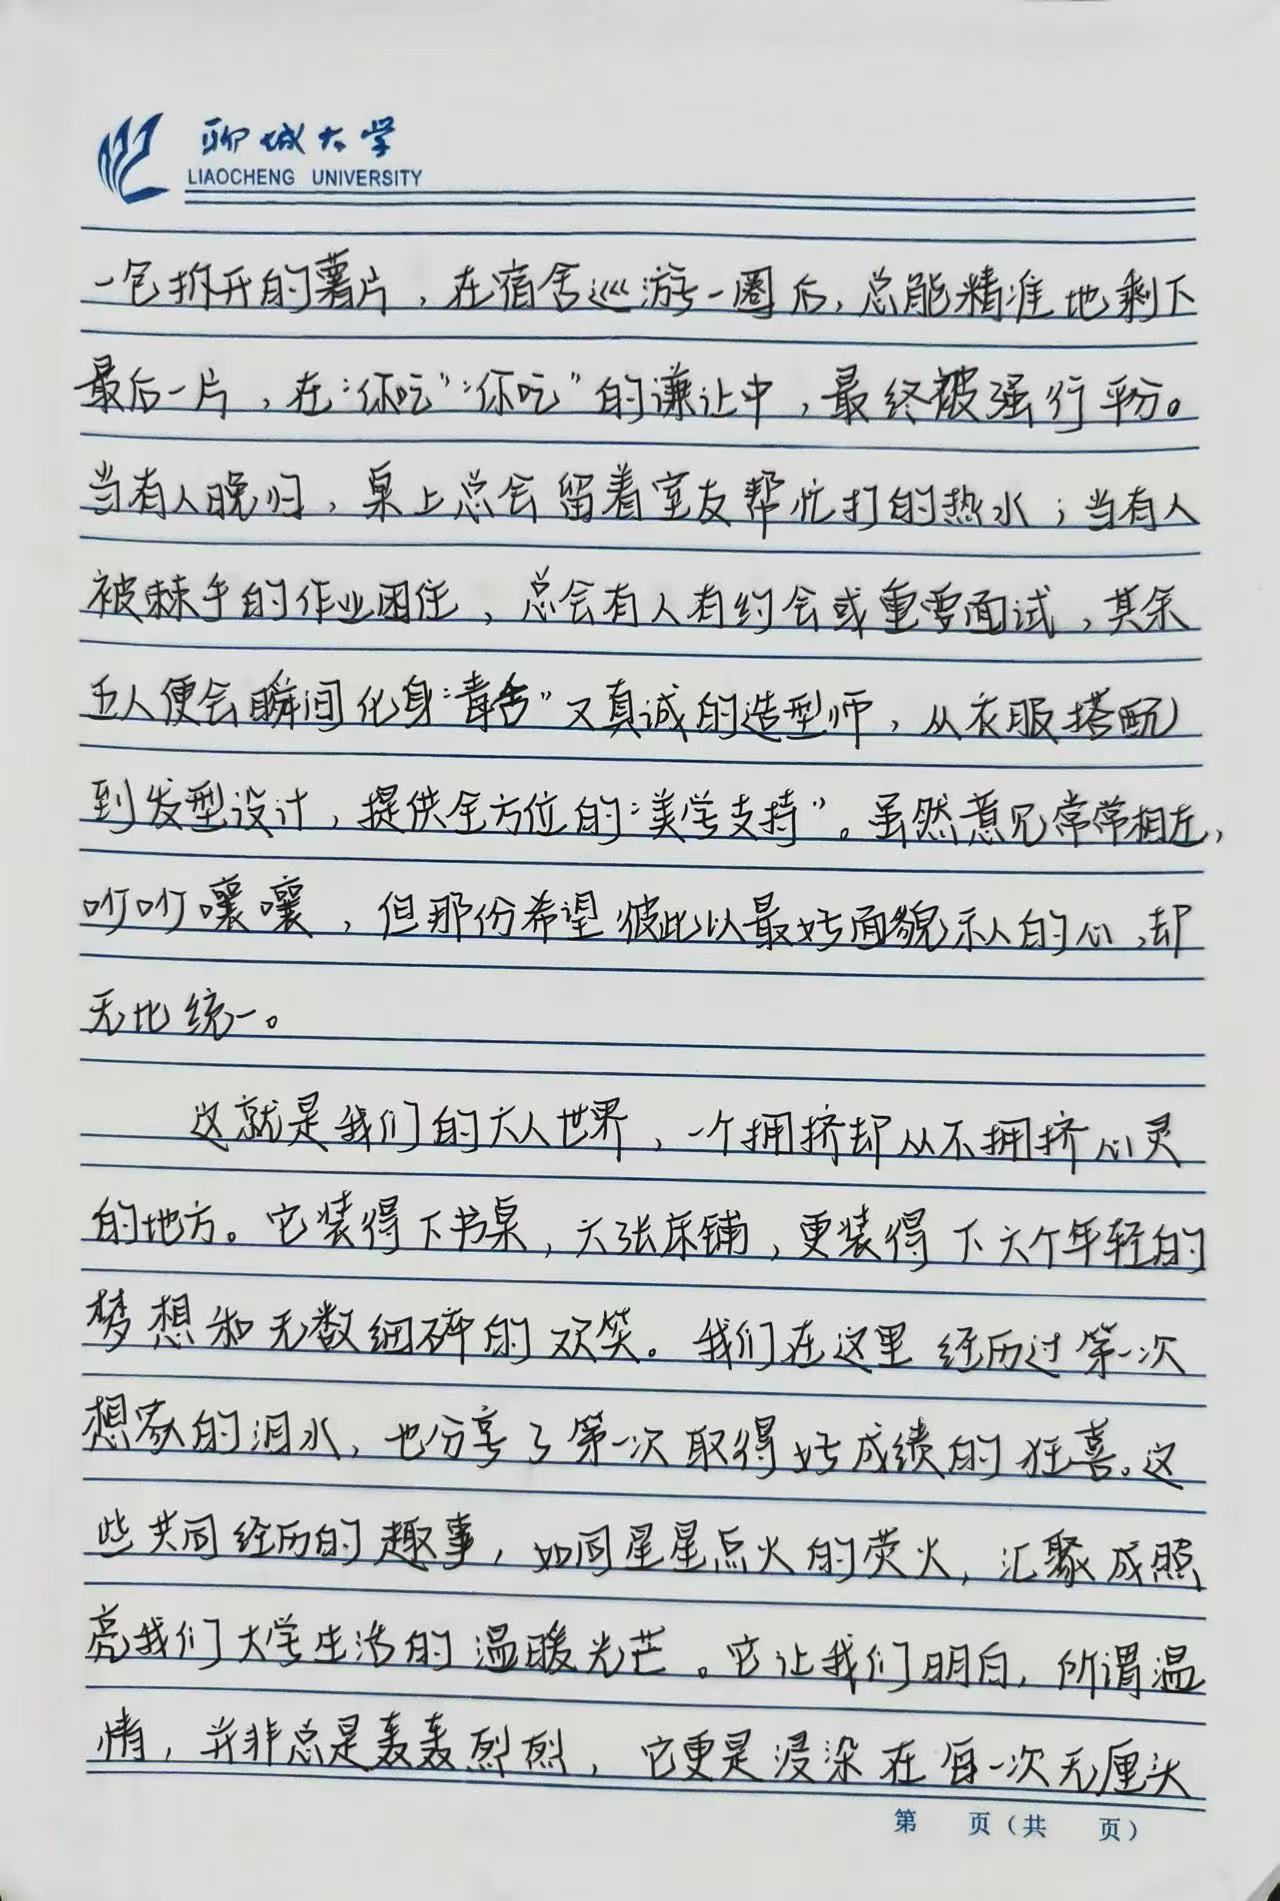 聊城大学
LIAOCHENG UNIVERSITY
一包拆开的薯片，在宿舍巡游一圈后，总能精准地剩下
最后一片，在“你吃”“你吃”的谦让中，最终被强行平分。
当有人晚归，桌上总会留着室友帮忙打的热水；当有人
被棘手的作业困住，总会有人有约会或重要面试，其余
五人便会瞬间化身“毒舌”又真诚的造型师，从衣服搭配
到发型设计，提供全方位的“美学支持”。虽然意见常常相左，
吵吵嚷嚷，但那份希望彼此以最好面貌示人的心，却
无比统一。
这就是我们的六人世界，一个拥挤却从不拥挤心灵
的地方。它装得下书桌，六张床铺，更装得下六个年轻的
梦想和无数细碎的欢笑。我们在这里经历过第一次
想家的泪水，也分享了第一次取得好成绩的狂喜。这
些共同经历的趣事，如同星星点火的荧火，汇聚成照
亮我们大学生活的温暖光芒。它让我们明白，所谓温
情，并非总是轰轰烈烈，它更是浸染在每一次无厘头
第 页（共 页）